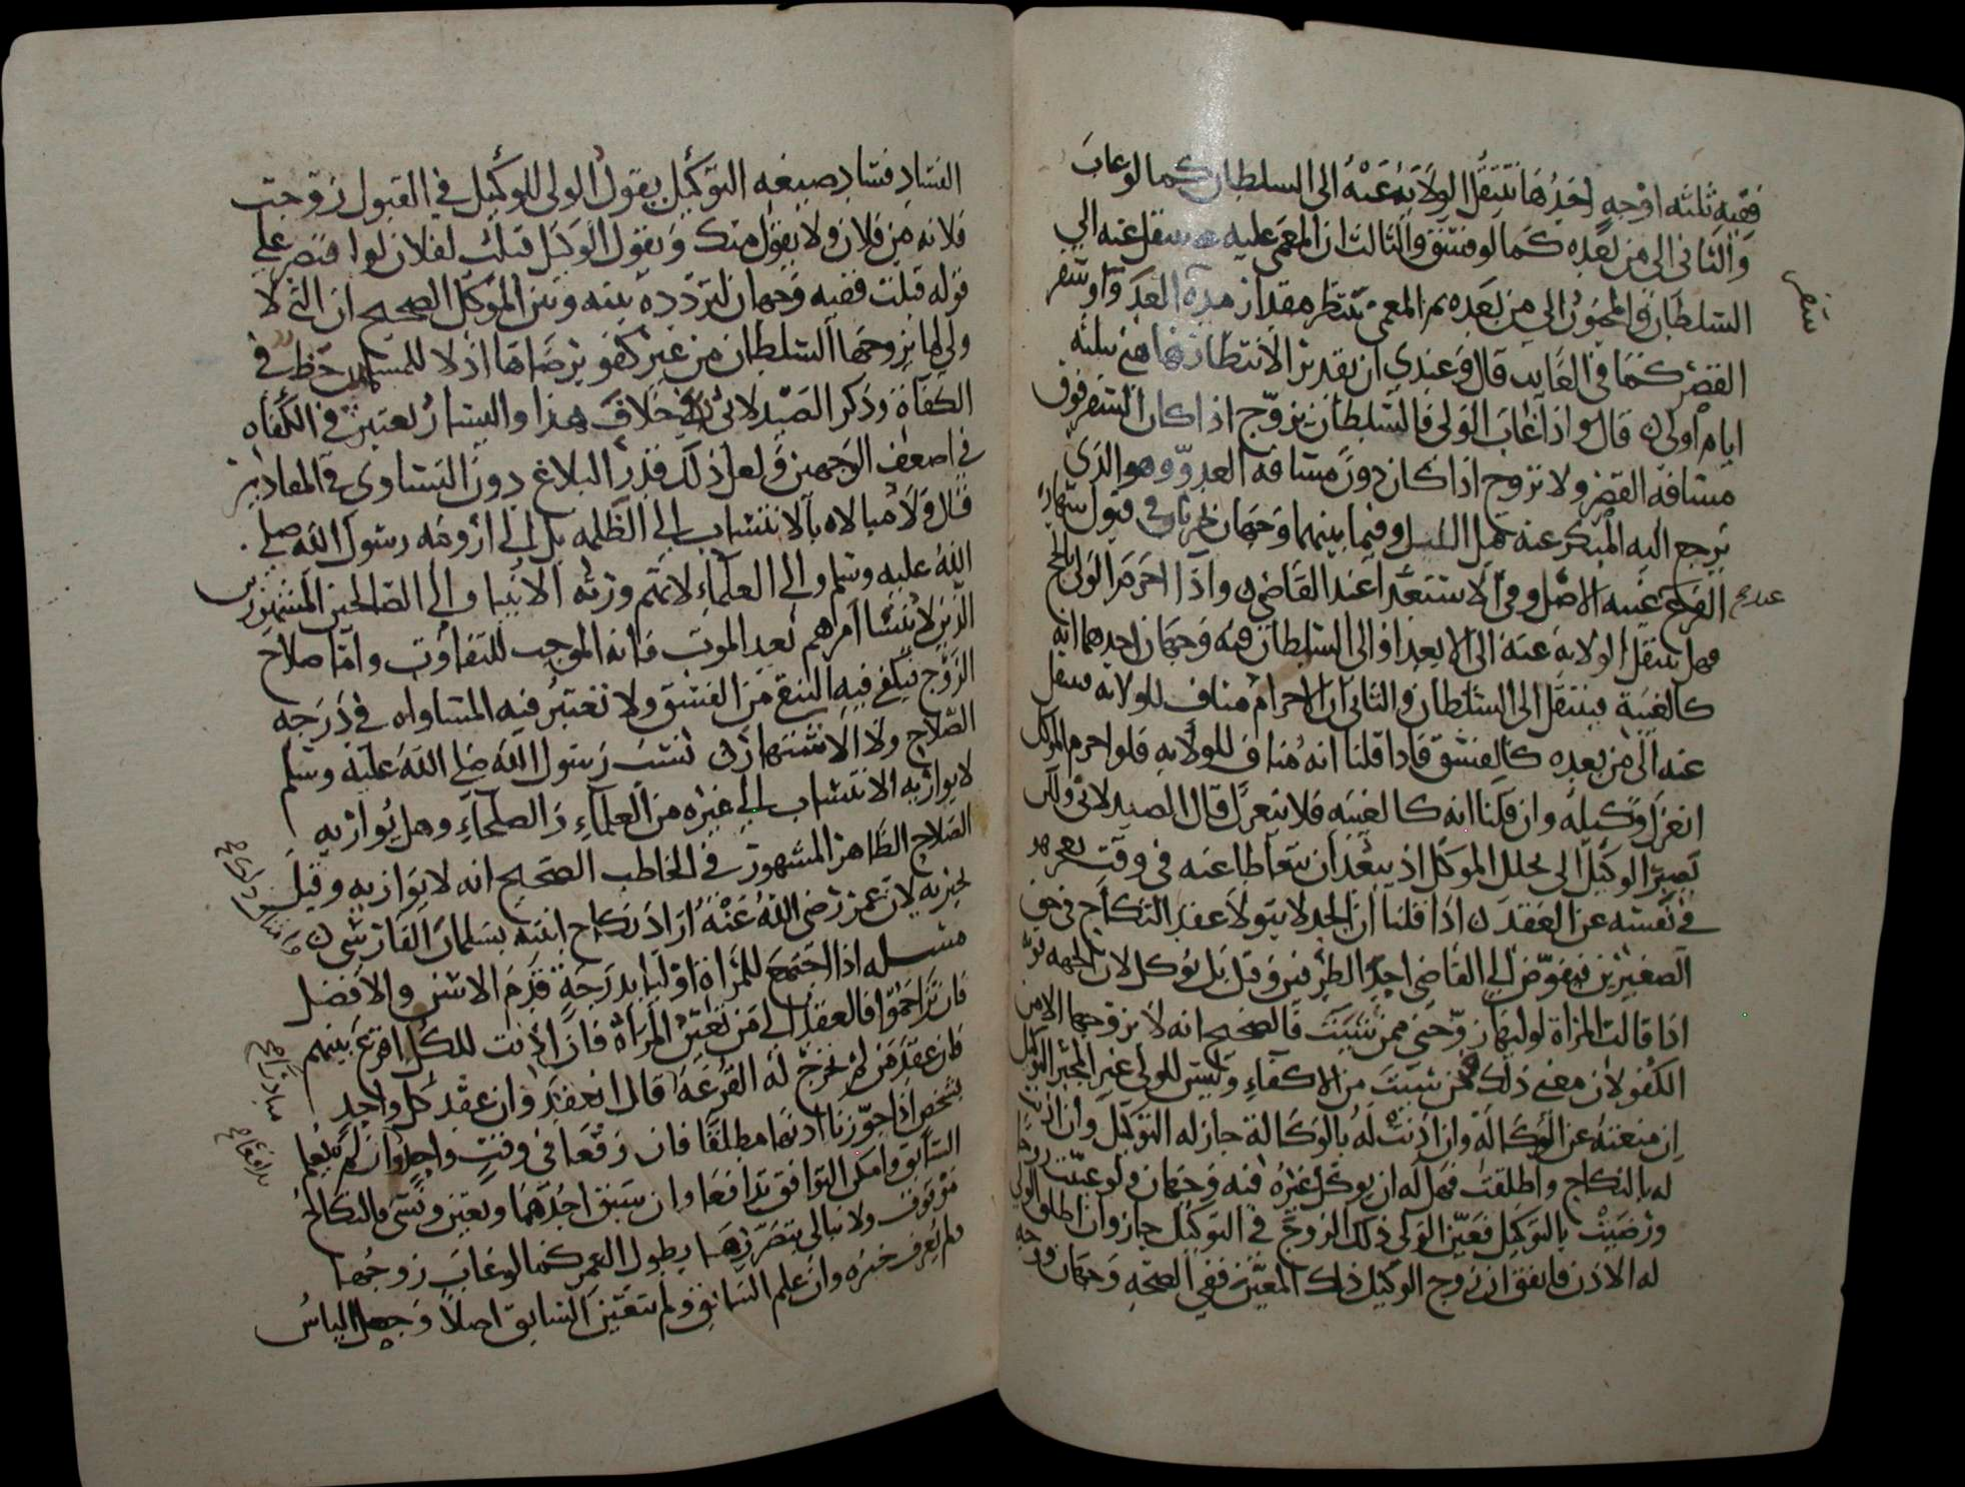 ففيه ثلثه اوجه احدها تنتقل الولاية عنه الى السلطان كما لو غاب
والثانى الى من بعده كما لو فسق والثالث ان المغمى عليه ينتقل عنه الى
السلطان والمجنون الى من بعده ثم المغمى ينتظر مقدار مدة العدوا وسفر
القصر كما فى الغايب قال وعندى ان تقدير الانتظار هاهنى بثلثه
ايام اولى قال واذا غاب الولى فالسلطان يزوج اذا كان السفر فوق
مسافة القصر ولا يزوج اذا كان دون مسافة العدو وهو الذى
يرجع اليه المبكر عنه قبل الليل وفيما بينهما وجهان جاريان فى قبول شهادة
الفرع عند غيبه الاصل وفى الاستعدا عند القاضى واذا احرم الولى بالحج
فهل تنتقل الولايه عنه الى الابعد او الى السلطان فيه وجهان احدهما انه
كالغيبة فينتقل الى السلطان والثانى ان الاحرام مناف للولايه فينتقل
عنه الى من بعده كالفسق فاذا قلنا انه مناف للولايه فلو احرم الموكل
انعزل وكيله وان قلنا انه كالغيبه فلا ينعزل قال الصيدلانى ولكن
يصبر الوكيل الى تحلل الموكل اذ يبعد ان يتعاطا عنه فى وقت
فى نفسه عن العقد اذا قلنا ان الجد لا يتولا عقد النكاح فى حق
الصغيرين فيفوض الى القاضى احد الطرفين وقيل بل يوكل لان الجهه
اذا قالت المراة لوليها زوجنى ممن شيت فالصحيح انه لا يزوجها الا من
الكفو لان معنى ذلك ممن شيت من الاكفاء وليس للولى غير المجبر التوكيل
ان منعته عن الوكالة وان اذنت له بالوكالة جاز له التوكيل وان اذنت
له بالنكاح واطلقت فهل له ان يوكل غيره فيه وجهان ولو عينت زوجا
ورضيت بالتوكيل فعين الولى ذلك الزوج فى التوكيل جاز وان اطلق الولى
له الاذن فاتفق ان زوج الوكيل ذلك المعين ففى الصحه وجهان وجه
الفساد فساد صيغه التوكيل يقول الولى للوكيل فى القبول زوجت
فلانه من فلان ولا يقول منك ويقول الوكيل قبلت لفلان لو اقتصر على
قوله قبلت ففيه وجهان لتردده بينه وبين الموكل الصحيح ان التى لا
ولى لها يزوجها السلطان من غير كفو برضاها اذ لا للمسلمين حظ فى
الكفاة وذكر الصيدلانى خلاف هذا واليسار يعتبر فى الكفاه
فى اضعف الوجهين ولعل ذلك قدر البلاغ دون التساوى فى المقادير
قال ولا مبالاه بالانتساب الى الظلمه بل الى ارومه رسول الله صلى
الله عليه وسلم والى العلماء لانهم ورثه الانبيا والى الصالحين المشهورين
الذين لا ينسا امرهم بعد الموت فانه الموجب للتفاوت واما صلاح
الزوج فيكفى فيه التنقى من الفسق ولا تعتبر فيه المساواه فى درجه
الصلاح ولا الاشتهار نسب رسول الله صلى الله عليه وسلم
لا يوازيه الانتساب الى غيره من العلماء والصلحاء وهل يوازيه
الصلاح الظاهر المشهور فى الخاطب الصحيح انه لا يوازيه وقيل
لان عمر رضى الله عنه اراد نكاح ابنته بسلمان الفارسى
مسله اذا اجتمع للمراة اوليا بدرجة قدم الاسن والافضل
فان تزاحموا فالعقد الى من تعين المراة فان اذنت للكل اقرع بينهم
فان عقد من لم تخرج له القرعة قال انعقد وان عقد كل واحد
بشخص اذا جوزنا اذنها مطلقا فان وقعا فى وقت واحد وان لم يعلم
السابق وامكن التوافق تدافعا وان سبق احدهما وتعين ونسى فالنكاح
موقوف ولا نبالى بتضررها بطول العمر كما لو غاب زوجها
ولم يعرف خبره وان علم السابق ولم يتعين السابق اصلا وحصل الياس